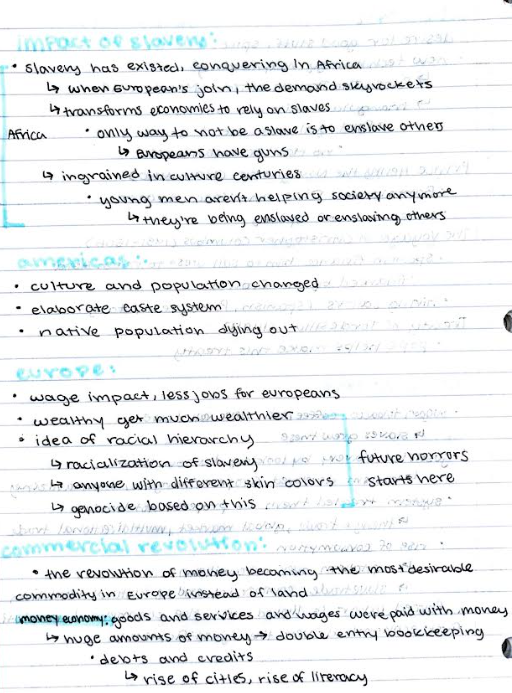 impact of slavery:
• slavery has existed, conquering in Africa
↳ when European's join, the demand skyrockets
↳ transforms economies to rely on slaves
Africa • only way to not be a slave is to enslave others
↳ Europeans have guns
↳ ingrained in culture centuries
• young men aren't helping society anymore
↳ they're being enslaved or enslaving others
americas:
• culture and population changed
• elaborate caste system
• native population dying out
europe:
• wage impact, less jobs for europeans
• wealthy get much wealthier
• idea of racial hierarchy
↳ racialization of slavery future horrors
↳ anyone with different skin colors starts here
↳ genocide based on this
commercial revolution:
• the revolution of money becoming the most desirable
commodity in Europe instead of land
money economy: goods and services and wages were paid with money
↳ huge amounts of money → double entry bookkeeping
• debts and credits
↳ rise of cities, rise of literacy